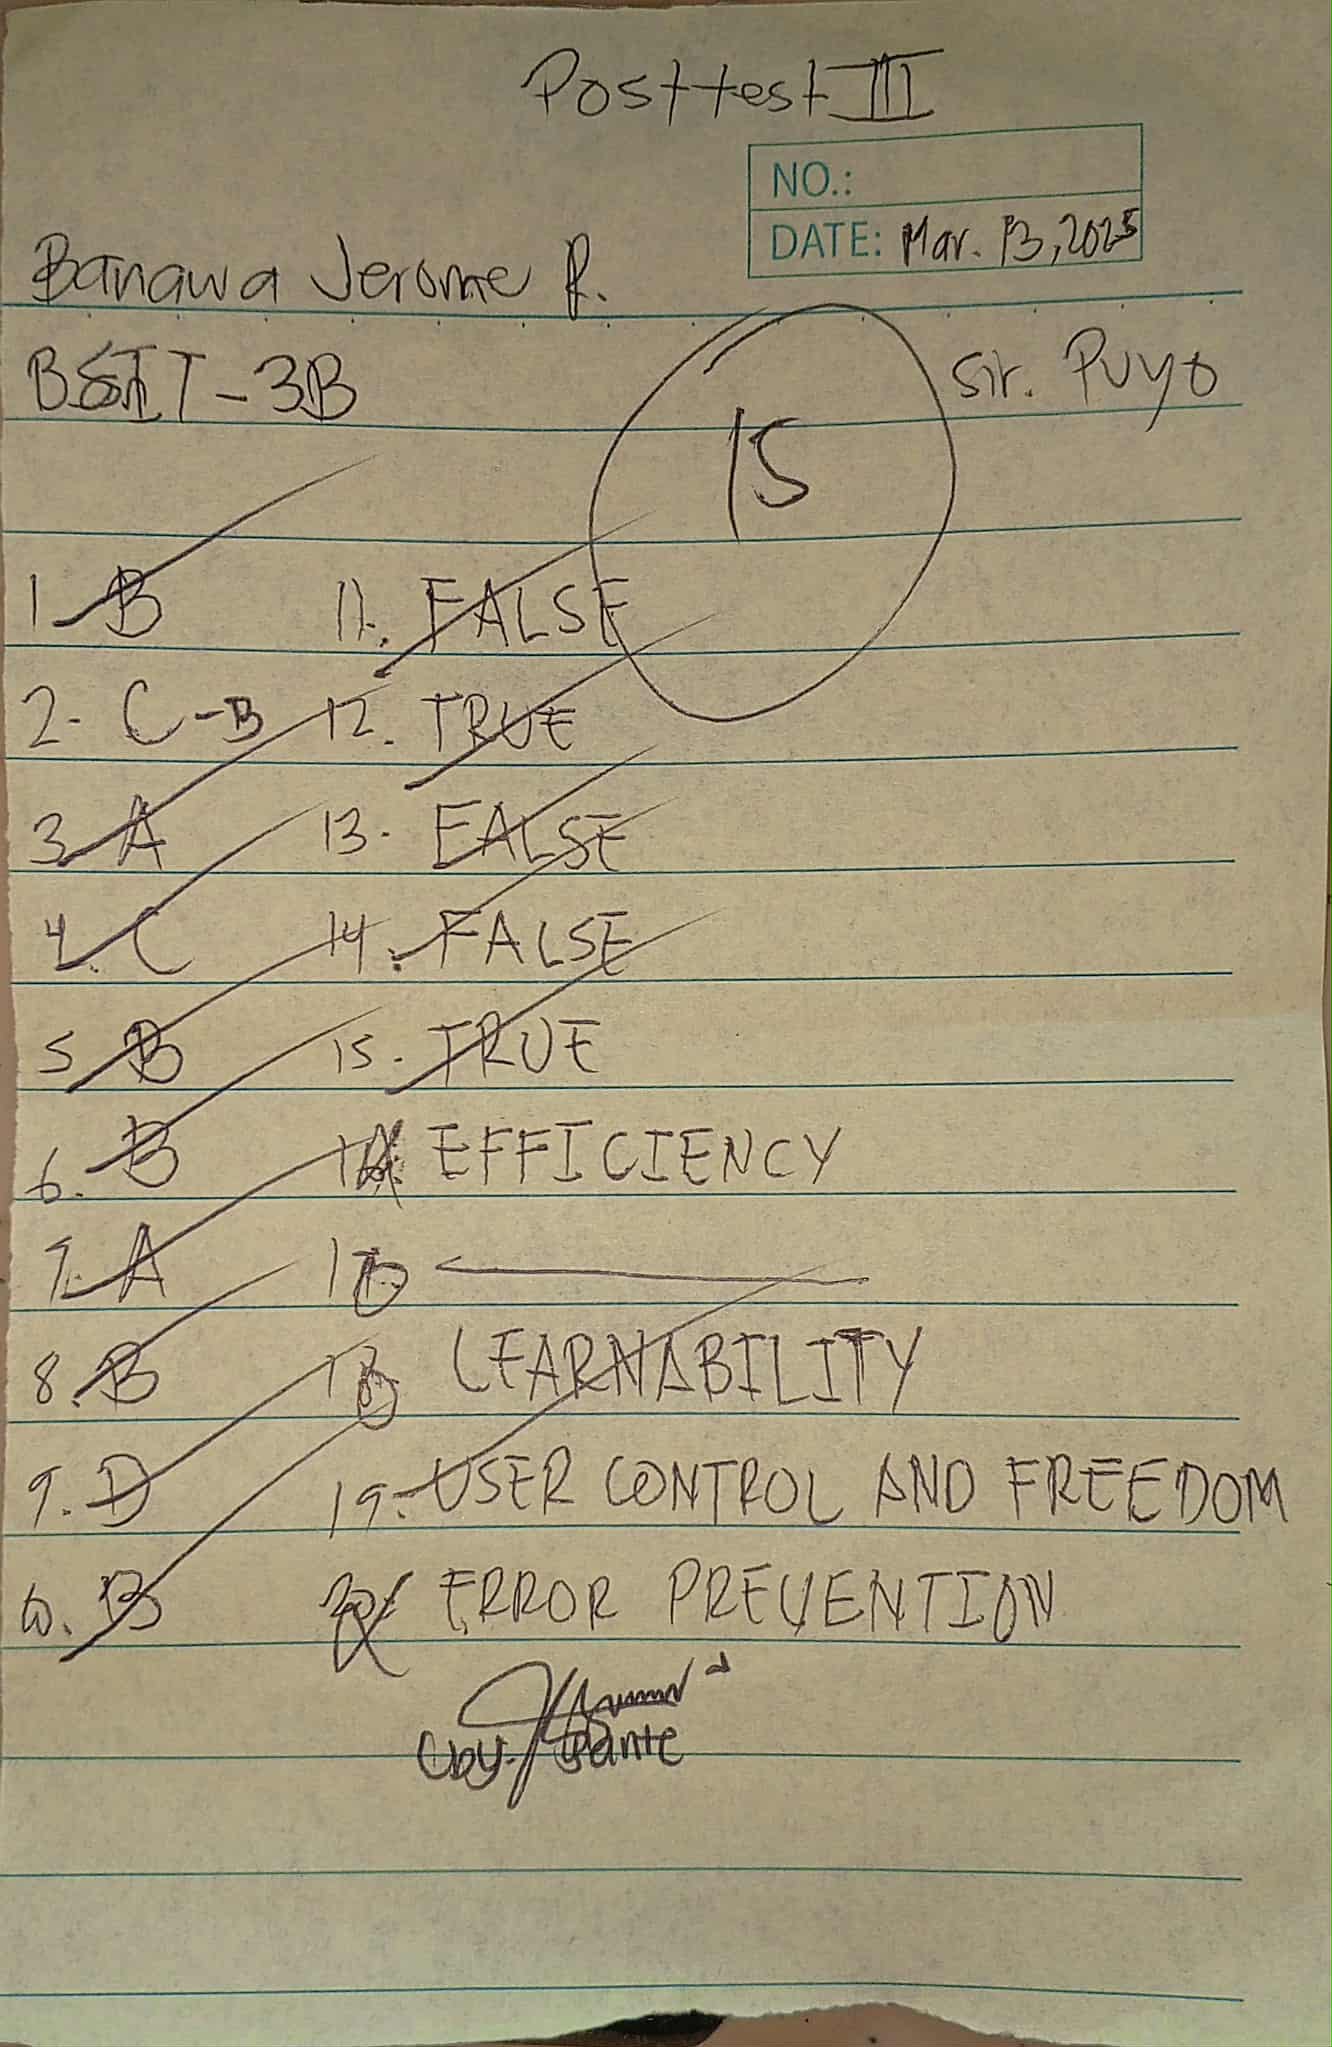 Posttest III
NO.:
DATE: Mar. 13, 2025
Banawa Jerome R.
BSIT-3B
Sir. Puyo
15
1. B
2. C-B
3. A
4. C
5. B
6. B
7. A
8. B
9. D
10. B
11. FALSE
12. TRUE
13. FALSE
14. FALSE
15. TRUE
16. EFFICIENCY
17.
18. LEARNABILITY
19. USER CONTROL AND FREEDOM
20. ERROR PREVENTION